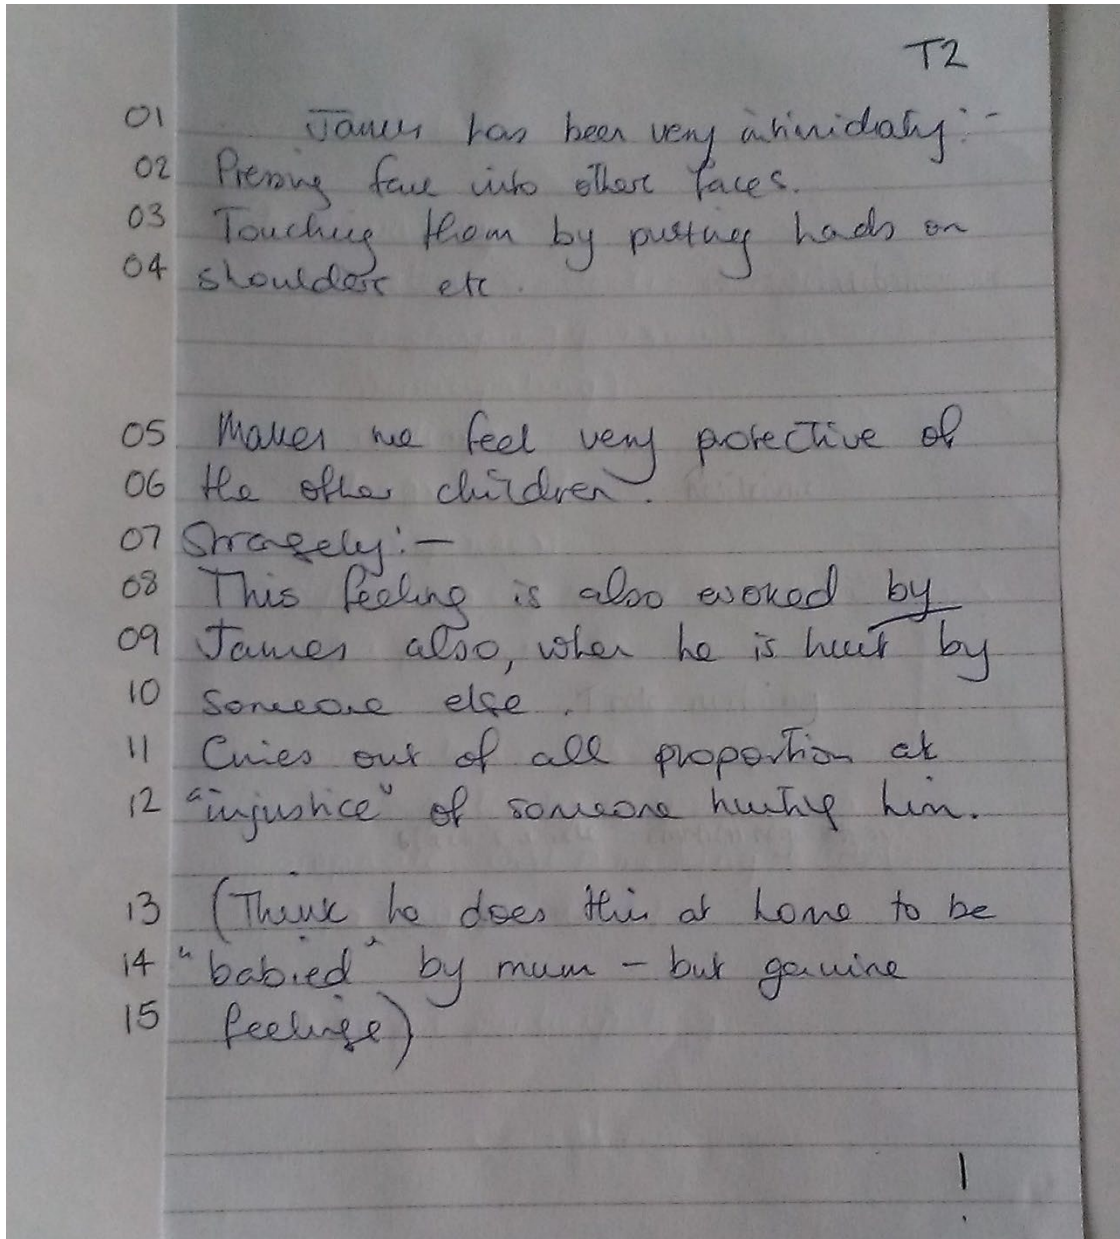 T2
01 James has been very intimidating:-
02 Pressing face into others faces.
03 Touching them by putting hands on
04 shoulders etc.
05 Makes me feel very protective of
06 the other children.
07 Strangely:-
08 This feeling is also evoked by
09 James also, when he is hurt by
10 someone else.
11 Cries out of all proportion at
12 "injustice" of someone hurting him.
13 (Think he does this at home to be
14 "babied" by mum - but genuine
15 feelings)
1